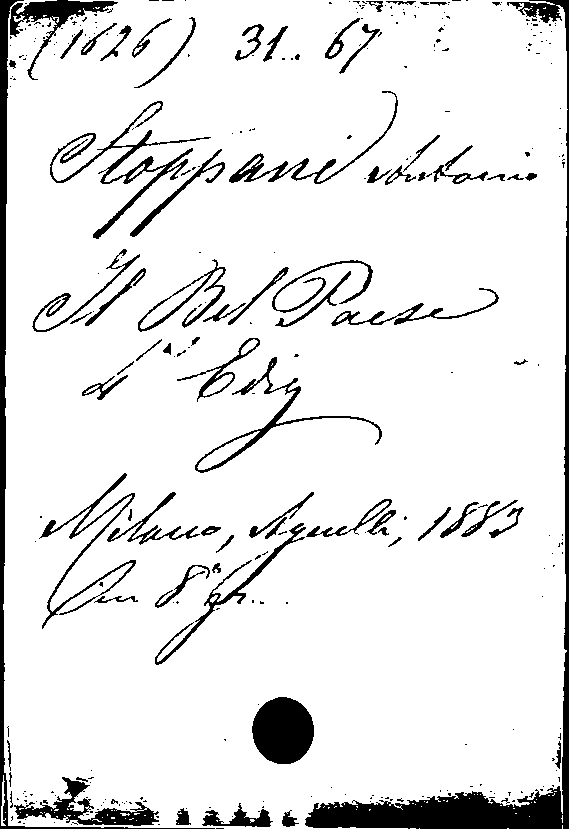 (1626) 31.. 67
Stoppani Antonio
Il Bel Paese
4ª Ediz
Milano, Agnelli, 1883
In 8° gr..